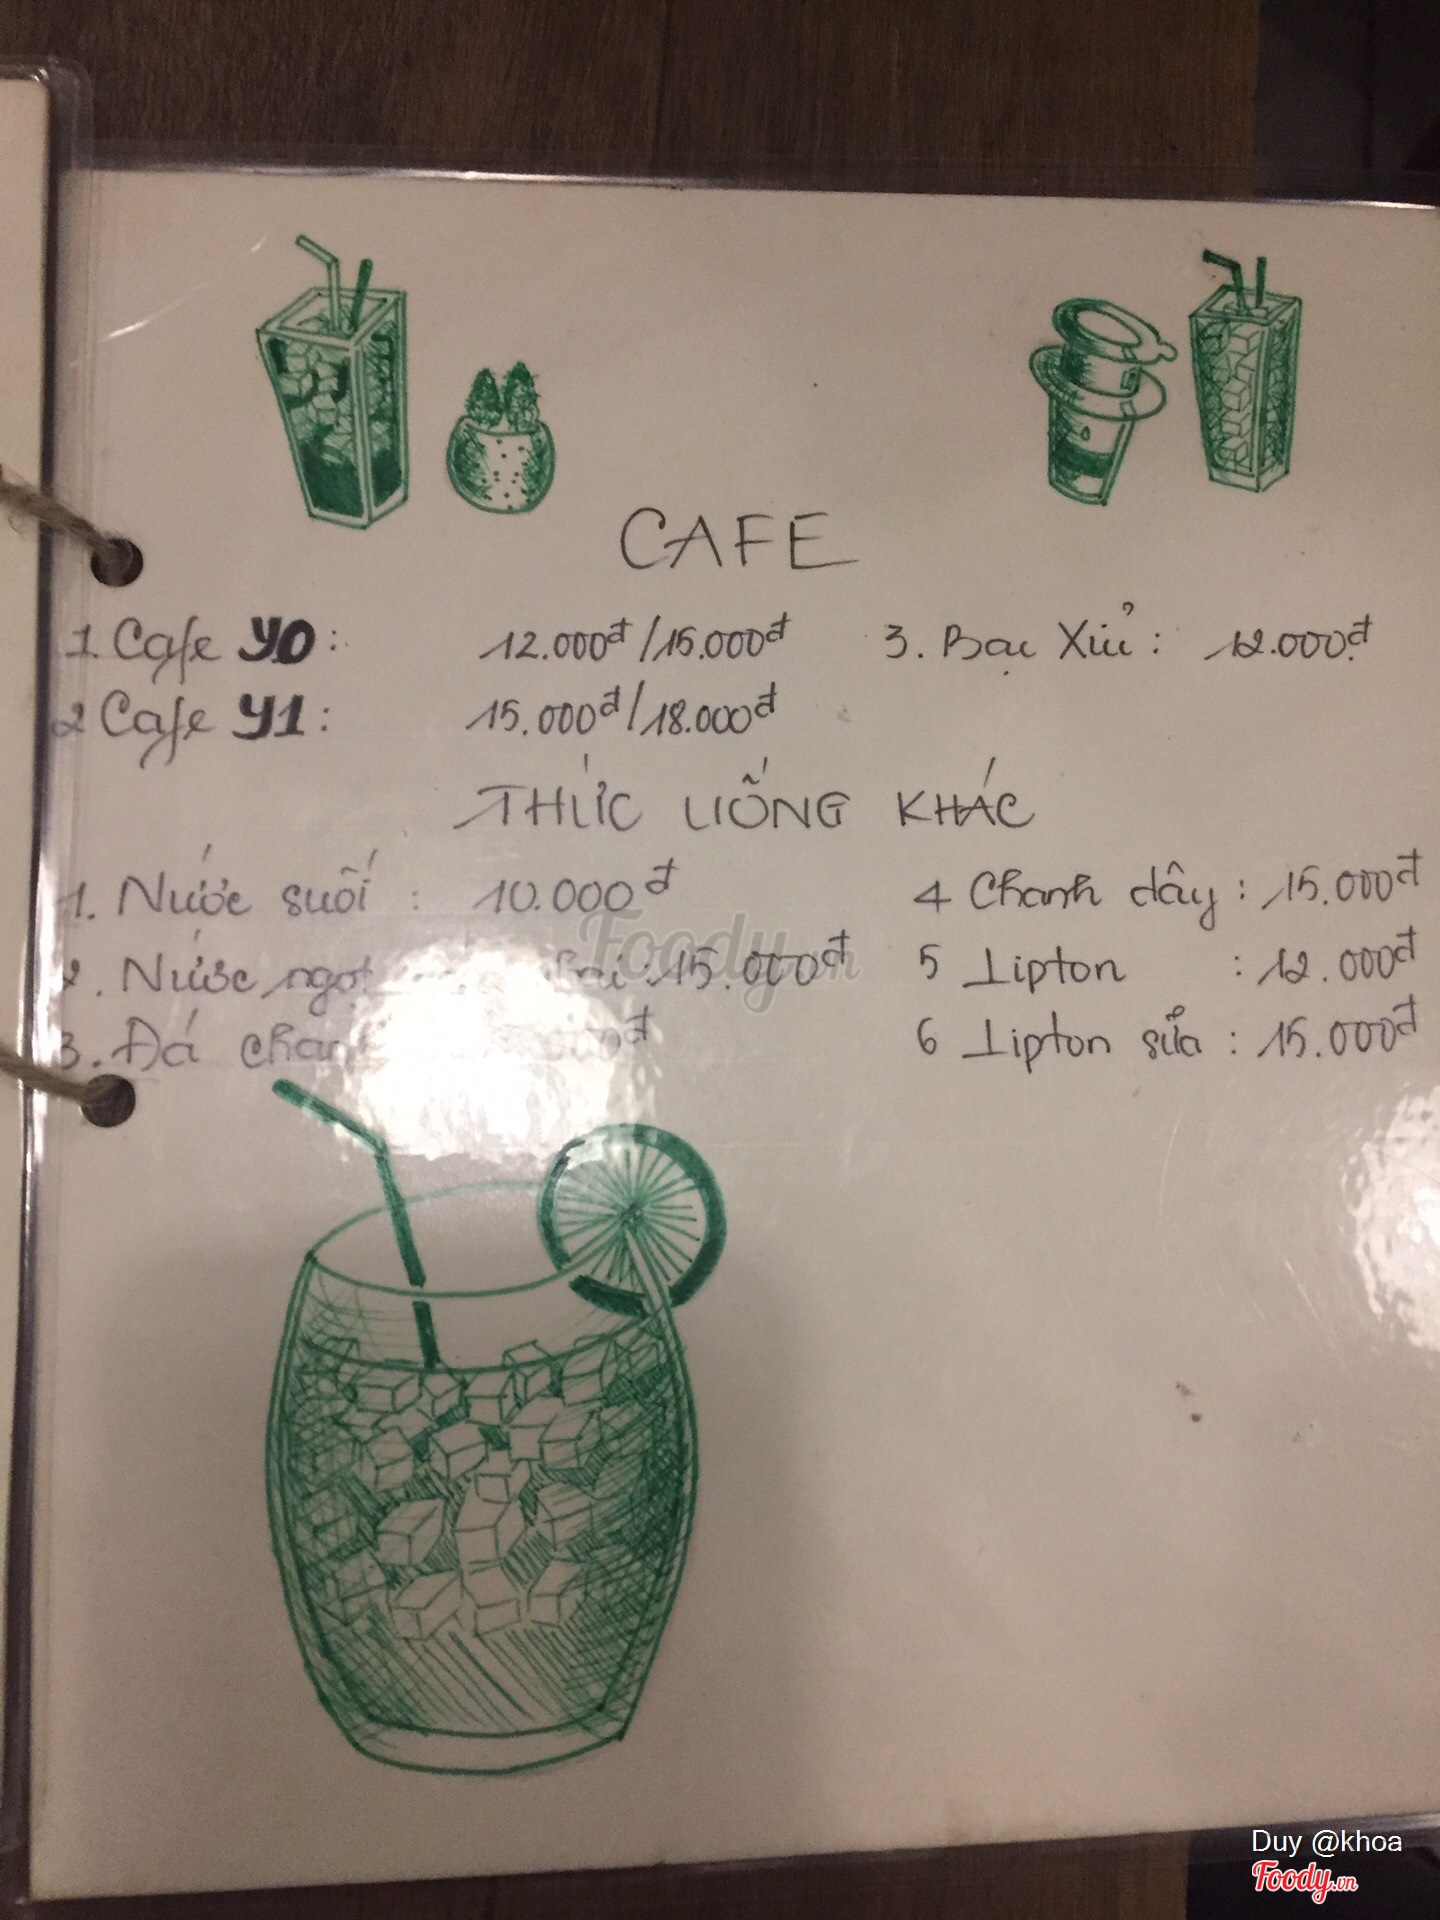 CAFE
1. Cafe Y0: 12.000đ/15.000đ
2 Cafe Y1: 15.000đ/18.000đ
3. Bạc Xỉu: 12.000đ
THỨC UỐNG KHÁC
1. Nước suối: 10.000đ
2. Nước ngọt 15.000đ
3. Đá
4 Chanh dây: 15.000đ
5 Lipton: 12.000đ
6 Lipton sữa: 15.000đ
Foody.vn
Duy @khoa
Foody.vn